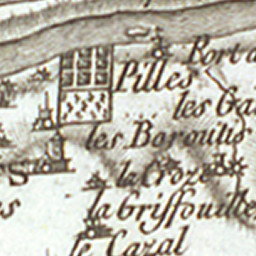 Port
Pilles
les
les Boroulis
s
la Croze
la Griffouille
es
le Cazal